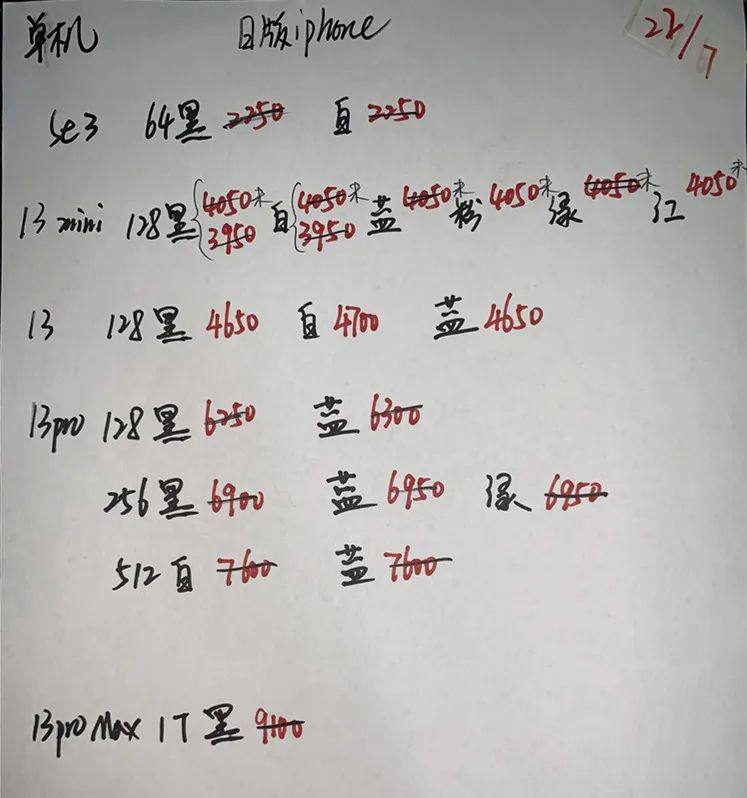 单机 日版iphone 22/7
se3 64黑 2250 白 2250
13 mini 128黑 4050未 3950 白 4050未 3950 蓝 4050未 粉 4050未 绿 4050未 红 4050未
13 128黑 4650 白 4700 蓝 4650
13pro 128黑 6250 蓝 6300
256黑 6900 蓝 6950 绿 6950
512白 7600 蓝 7600
13pro Max 1T 黑 9100